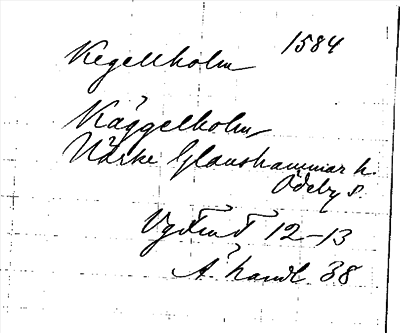 Kegellholm 1584
Käggelholm
Närke Glanshammar h.
Ödeby s.
12-13
A. handl. 38